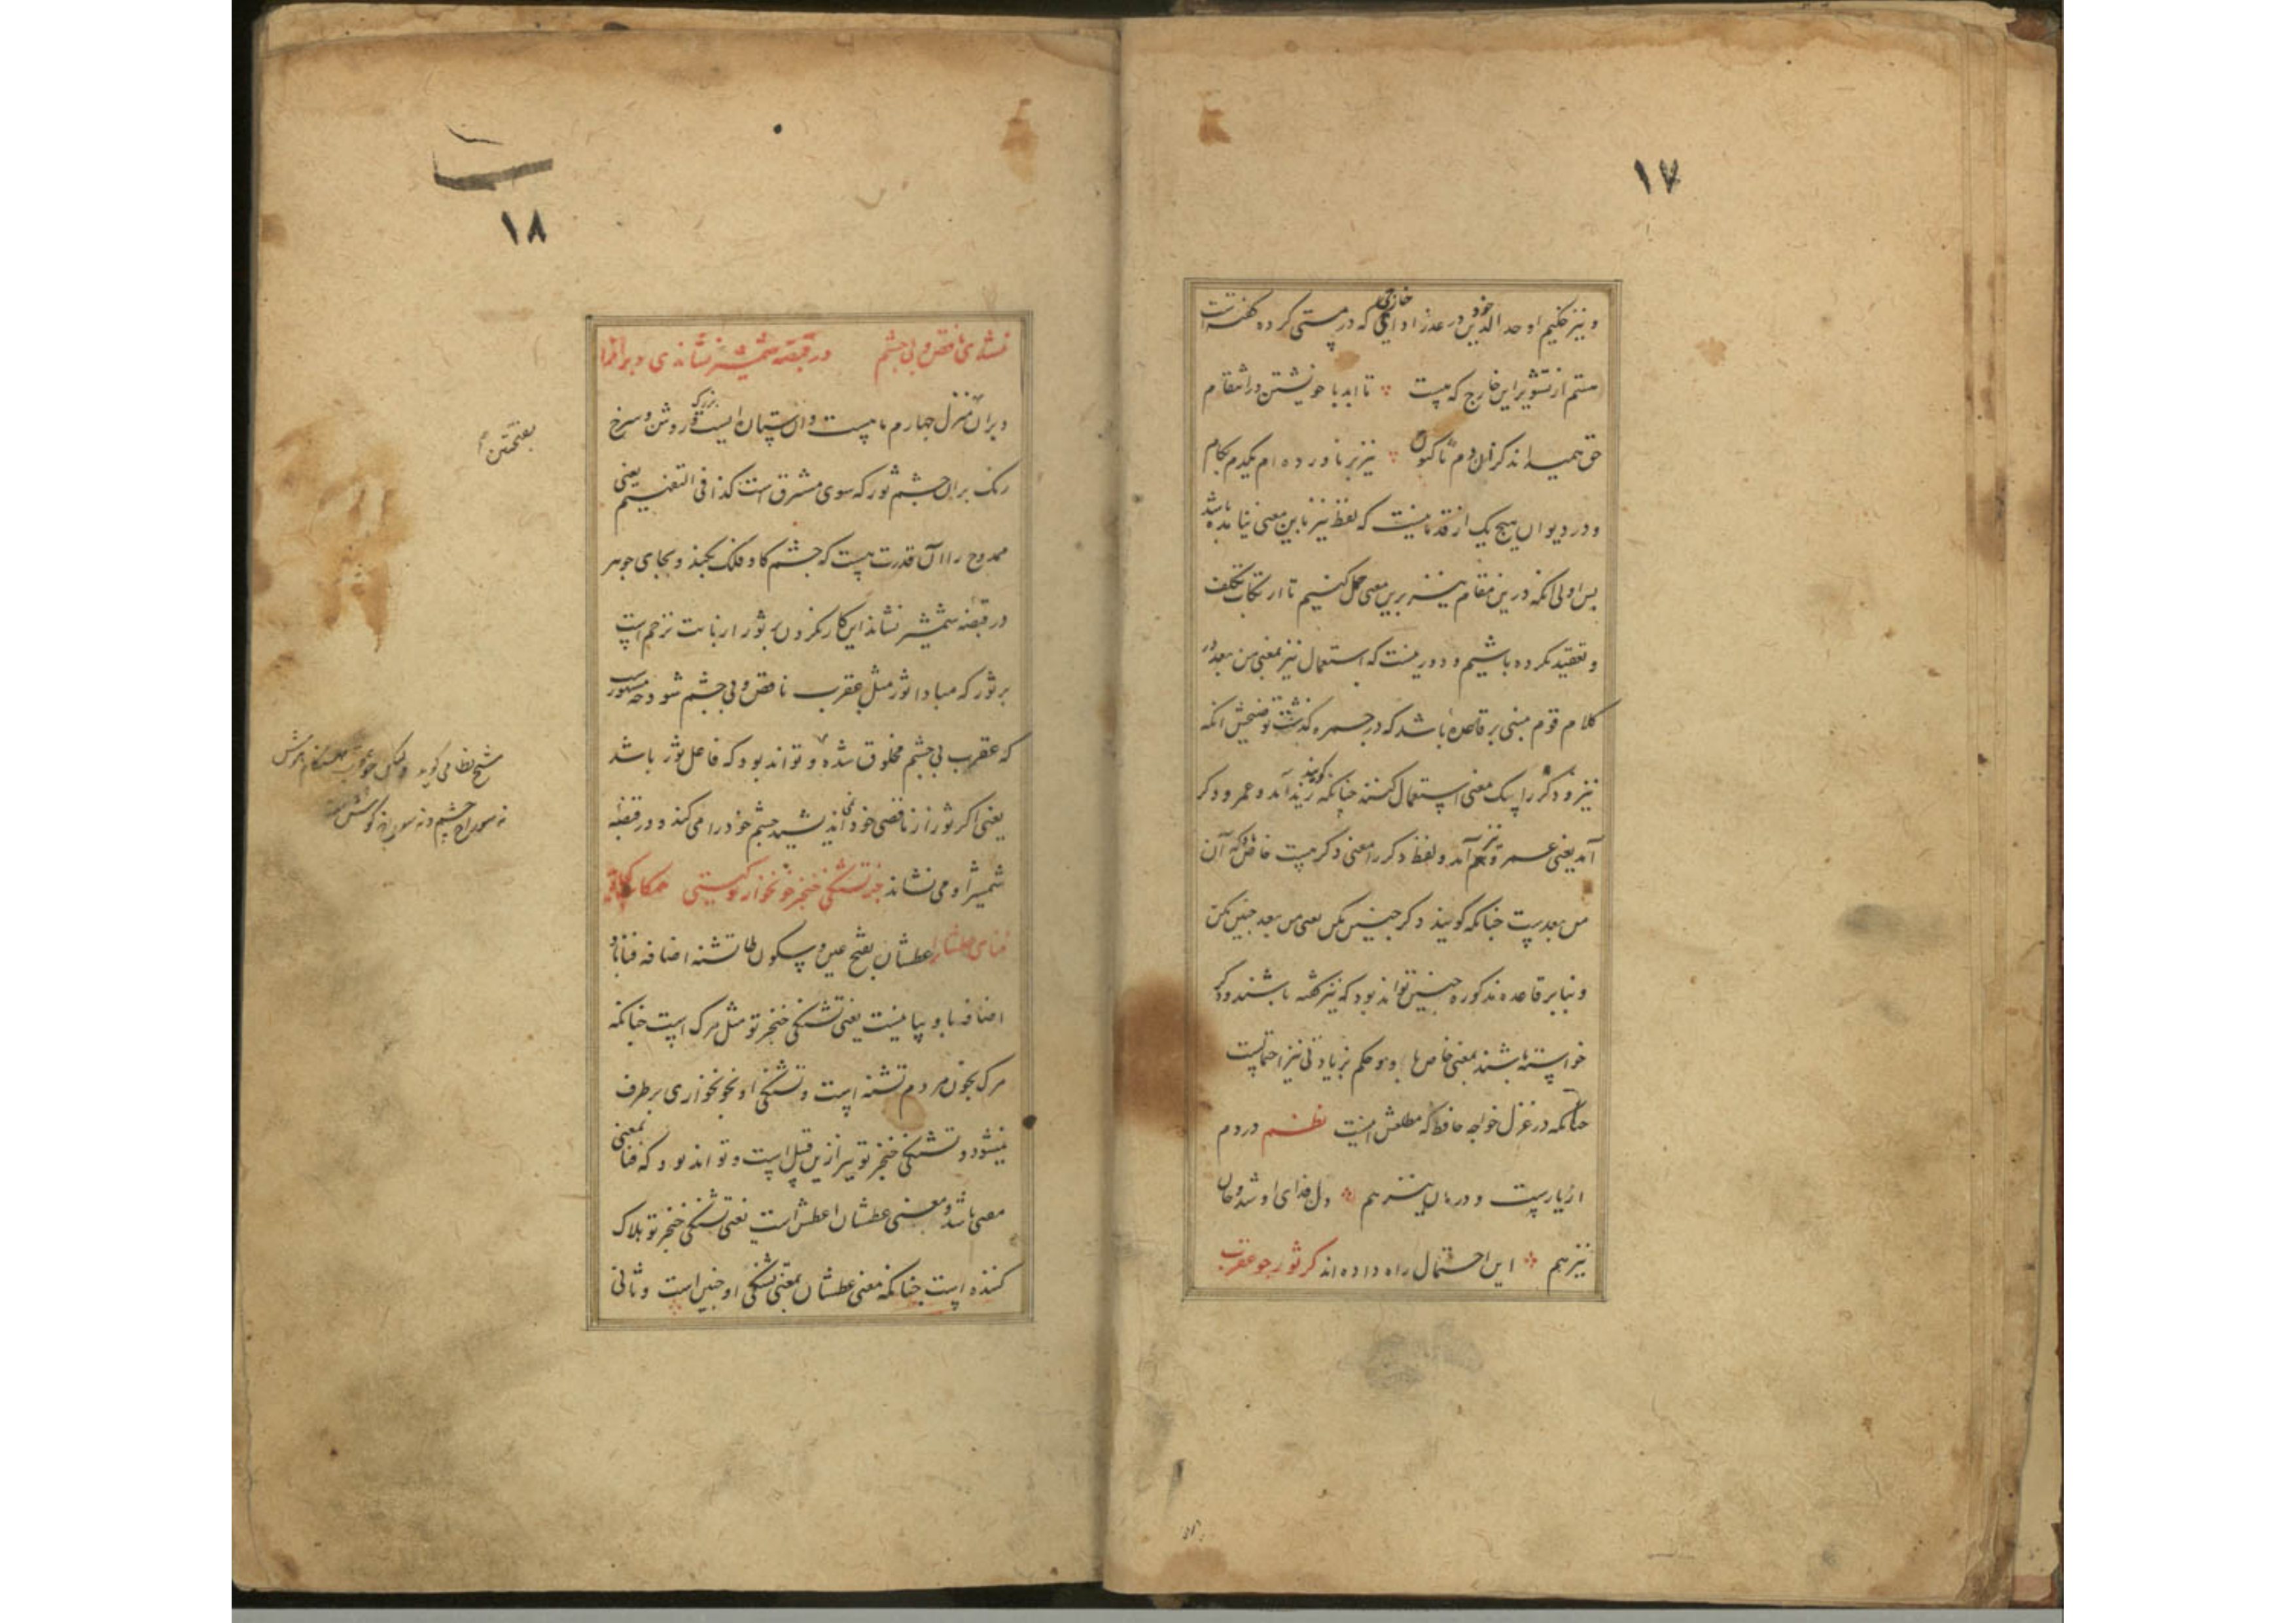 ۱۷
و نیز حکیم اوحدالدین در عذر خود که در مستی کرده گفته است
مستم از تشویر این خارج که هست تا ابد با خویشتن در انتقام
حق همیداند کزان دم تا کنون نیز بر ناورده ام یکدم بکام
و در دیوان هیچ یک از قدما نیست که لفظ نیز باین معنی نیامده باشد
پس اولی آنکه درین مقام نیز برین معنی حمل کنیم تا ارتکاب تکلف
و تعقید نکرده باشیم و دور نیست که استعمال نیز بمعنی من بعد در
کلام قوم مبنی بر قاعده باشد که در جمره گذشت توضیحش آنکه
نیز و دگر را بیک معنی استعمال کنند چنانکه گویند زید آمد و عمرو دگر
آمد یعنی عمرو نیز آمد و لفظ دگر را معنی دگر هست خاص که آن
من بعدست چنانکه گویند دگر چنین مکن یعنی من بعد چنین مکن
و بنا بر قاعده مذکوره چنین تواند بود که نیز گفته باشند و دگر
خواسته باشند بمعنی خاص و حکم بزیادتی نیز احتمالیست
چنانکه در غزل خواجه حافظ که مطلعش اینست نظم دردم
از یارست و درمان نیز هم دل فدای او شد و جان
نیز هم این احتمال راه داده اند گر ثور چو عقرب
۱۸
نشدی ناقص و بی چشم در قبضه شمشیر نشاندی دبران را
دبران منزل چهارم ماهست و آن ستاره ایست بزرگ روشن و سرخ
رنگ بران چشم ثور که سوی مشرق است کذا فی التفهیم یعنی
ممدوح را آن قدرت هست که چشم گاو فلک بکند و بجای جوهر
در قبضه شمشیر نشاند این کار نکردن بر ثور از بابت ترحم است
بر ثور که مبادا ثور مثل عقرب ناقص و بی چشم شود چه مشهور
که عقرب بی چشم مخلوق شده و تواند بود که فاعل ثور باشد
یعنی اگر ثور از ناقصی خود نمی اندیشید چشم خود را می کند و در قبضه
شمشیر او می نشاند جز تشنگی خنجر خونخوار تو گیتی
فنای عطشان را عطشان بفتح عین و سکون طا تشنه اضافه فنا باو
اضافه بیانیست یعنی تشنگی خنجر تو مثل مرگ است چنانکه
مرگ بخون مردم تشنه است و تشنگی او بخونخواری برطرف
نمیشود و تشنگی خنجر تو نیز ازین قبیل است و تواند بود که فنا بمعنی
مفنی باشد و معنی عطشان عطش است یعنی تشنگی خنجر تو هلاک
کننده است چنانکه معنی عطشان بمعنی تشنگی او چنین است و ثانی
بفتحتین
شیخ نظامی گوید